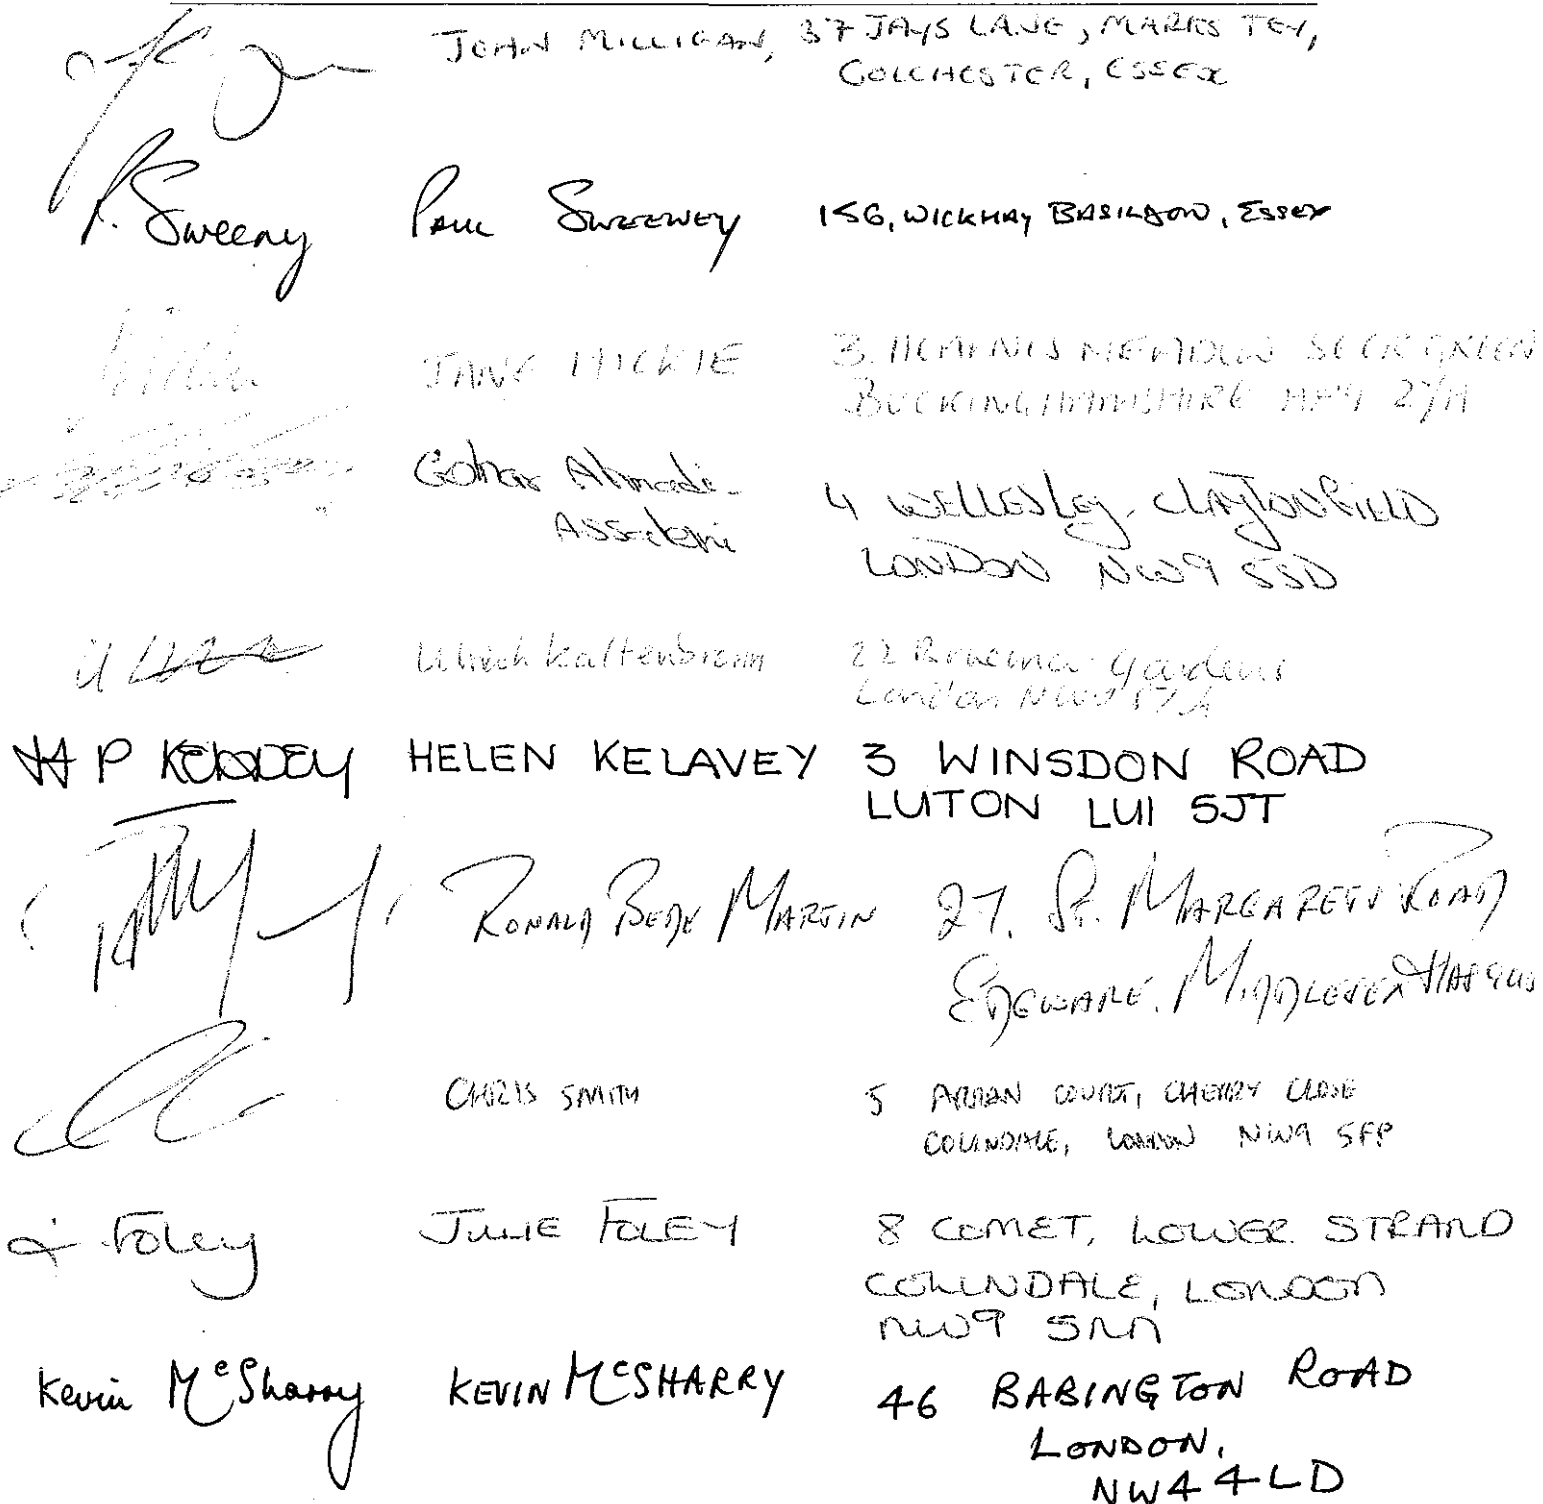 JOHN MILLIGAN, 37 JAYS LANE, MARKS TEY,
COLCHESTER, ESSEX
P. Sweeny PAUL SWEENEY 156, WICKHAY BASILDON, ESSEX
JANE HICKIE 3 MEADOW SEER GREEN
BUCKINGHAMSHIRE HP9
Gohar Ahmadi-
4 WELLESLEY CLAYTONFIELD
Assadoni
LONDON NW9 5SD
Ulrich Kaltenbrunn 22 Gardens
London
H P KELAVEY HELEN KELAVEY 3 WINSDON ROAD
LUTON LU1 5JT
RONALD BEDE MARTIN 27. St. MARGARETS ROAD
EDGWARE. MIDDLESEX
CHRIS SMITH 5 ARRAN COURT, CHERRY CLOSE
COLINDALE, LONDON NW9 5FP
J Foley JULIE FOLEY 8 COMET, LOWER STRAND
COLINDALE, LONDON
NW9 5NN
Kevin McSharry KEVIN McSHARRY 46 BABINGTON ROAD
LONDON,
NW4 4LD